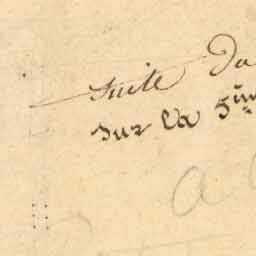 suite Du
sur la 5im
a